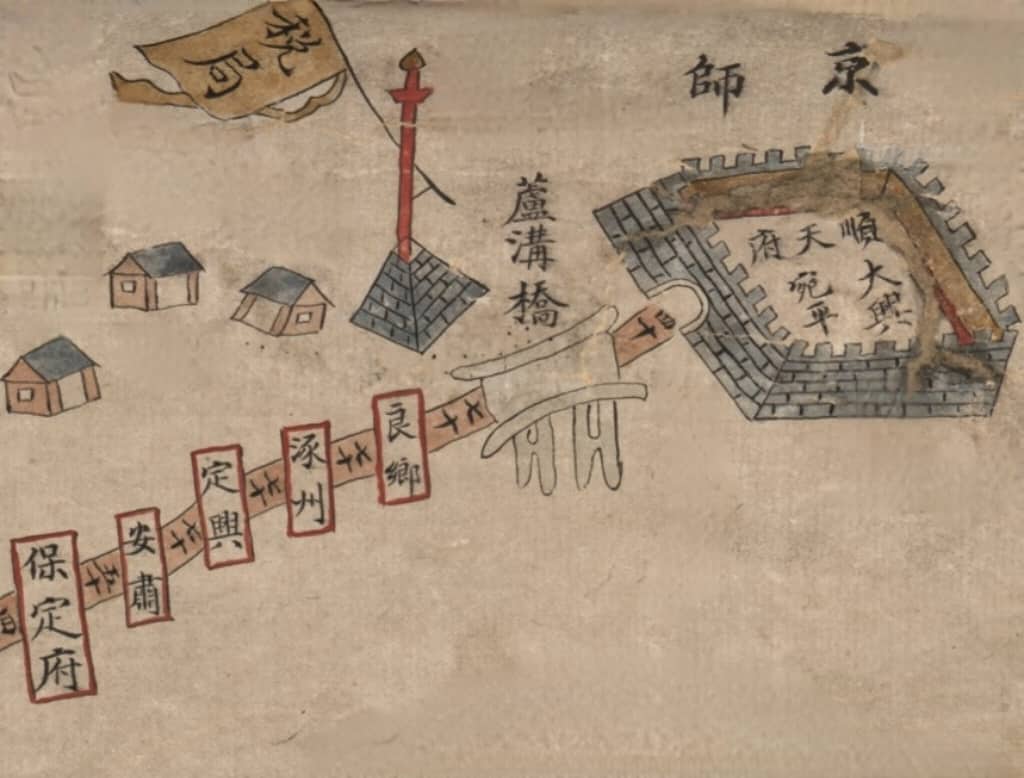 京師
順天府
大興
宛平
蘆溝橋
税局
四十
七十
良鄉
七十
涿州
七十
定興
七十
安肅
五十
保定府
四